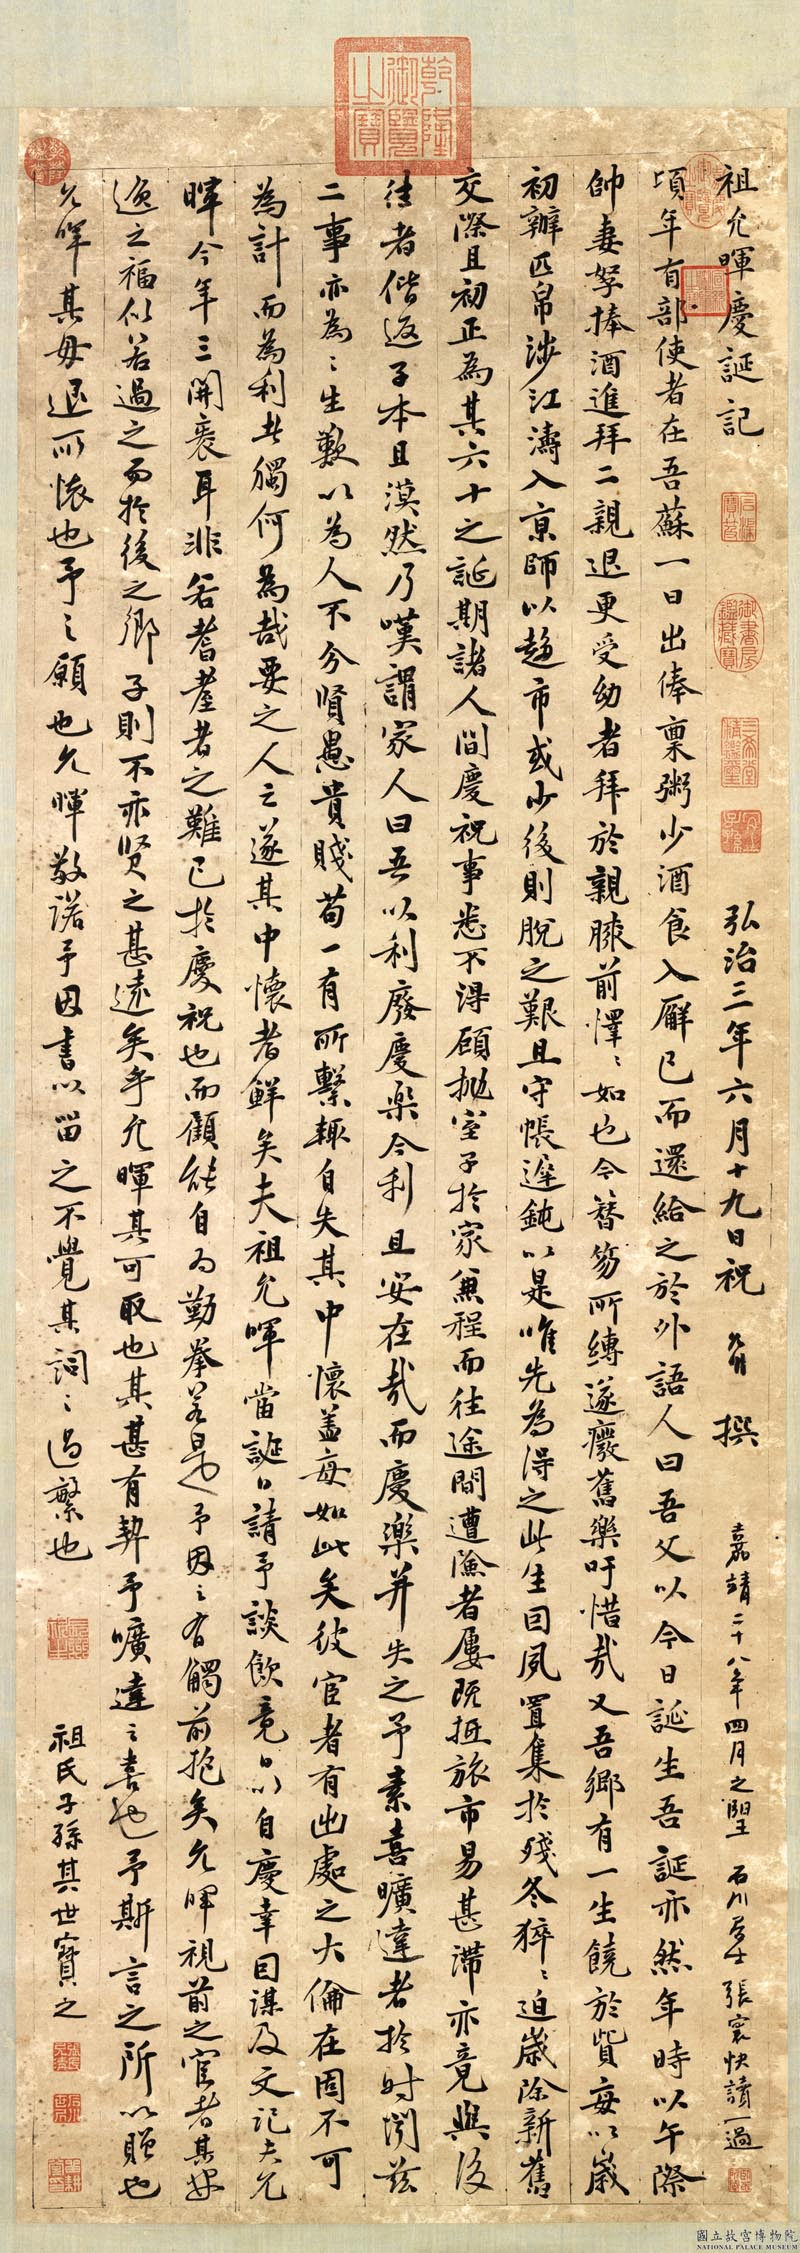 祖允暉慶誕記 弘治三年六月十九日祝允明撰
嘉靖二十八年四月之望 石川居士張寰快讀一過
頃年有部使者在吾蘇一日出俸稟粥少酒食入廨已而還給之於外語人曰吾父以今日誕生吾誕亦然年時以午際
帥妻孥捧酒進拜二親退更受幼者拜於親膝前懌〻如也今簪笏所縛遂癈舊樂吁惜哉又吾鄉有一生饒於貲每以歲
初辦匹帛涉江濤入京師以趂市或少後則脫之艱且守帳遲鈍以是唯先為得之此生囙夙置集於殘冬猝〻迫歲除新舊
交際且初正為其六十之誕期諸人間慶祝事悉不得顧拋室子於家兼程而往途間遭險者屢既抵旅市易甚滯亦竟與後
往者偕返子本且漠然乃嘆謂家人曰吾以利廢慶樂今利且安在哉而慶樂并失之予素喜曠達者於時閔茲
二事亦為〻生歎以為人不分賢愚貴賤苟一有所繫輒自失其中懷盖每如此矣彼宦者有出處之大倫在固不可
為計而為利者獨何為哉要之人之遂其中懷者鮮矣夫祖允暉當誕日請予談飲竟日以自慶幸因謀及文記夫允
暉今年三開袠耳非若耆耋者之難已於慶祝也而顧能自為勤拳若是也予因之有觸前抱矣允暉視前之宦者其安
逸之福似若過之而於後之鄉子則不亦贤之甚遠矣乎允暉其可取也其甚有契予曠達之喜也予斯言之所以贈也
允暉其毋退所懷也予之願也允暉敬諾予因書以畱之不覺其詞之過繁也
祖氏子孫其世寶之
乾隆御覽之寶
石渠寶笈
御書房鑑藏寶
三希堂精鑑璽
宜子孫
國立故宮博物院
NATIONAL PALACE MUSEUM